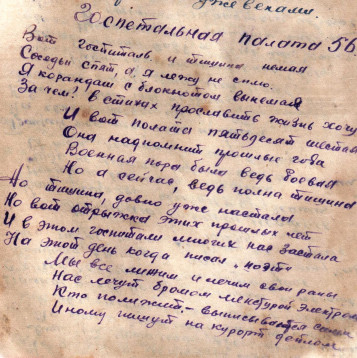 уже веками.
Госпетальная палата 56.
Вот госпиталь, и тишина немая
Соседи спят, а я лежу не сплю.
Я корандаш с блокнотом вынемая
За чем! в стихах прославить жизнь хочу
И вот полата пятьдесят шестая
Она надпомнит прошлые года
Военная пора была ведь боевая
Но а сейчас, ведь полна тишина
Но тишина, довно уже настала
Но вот отрыжка этих прошлых лет
И в этом госпитали многих нас застала
На этот день когда писал „поэт"
Мы все лежим и лечим свои раны
Нас лечут бромом микстурой
Кто полежит - выписывается
Иному пишут на курорт